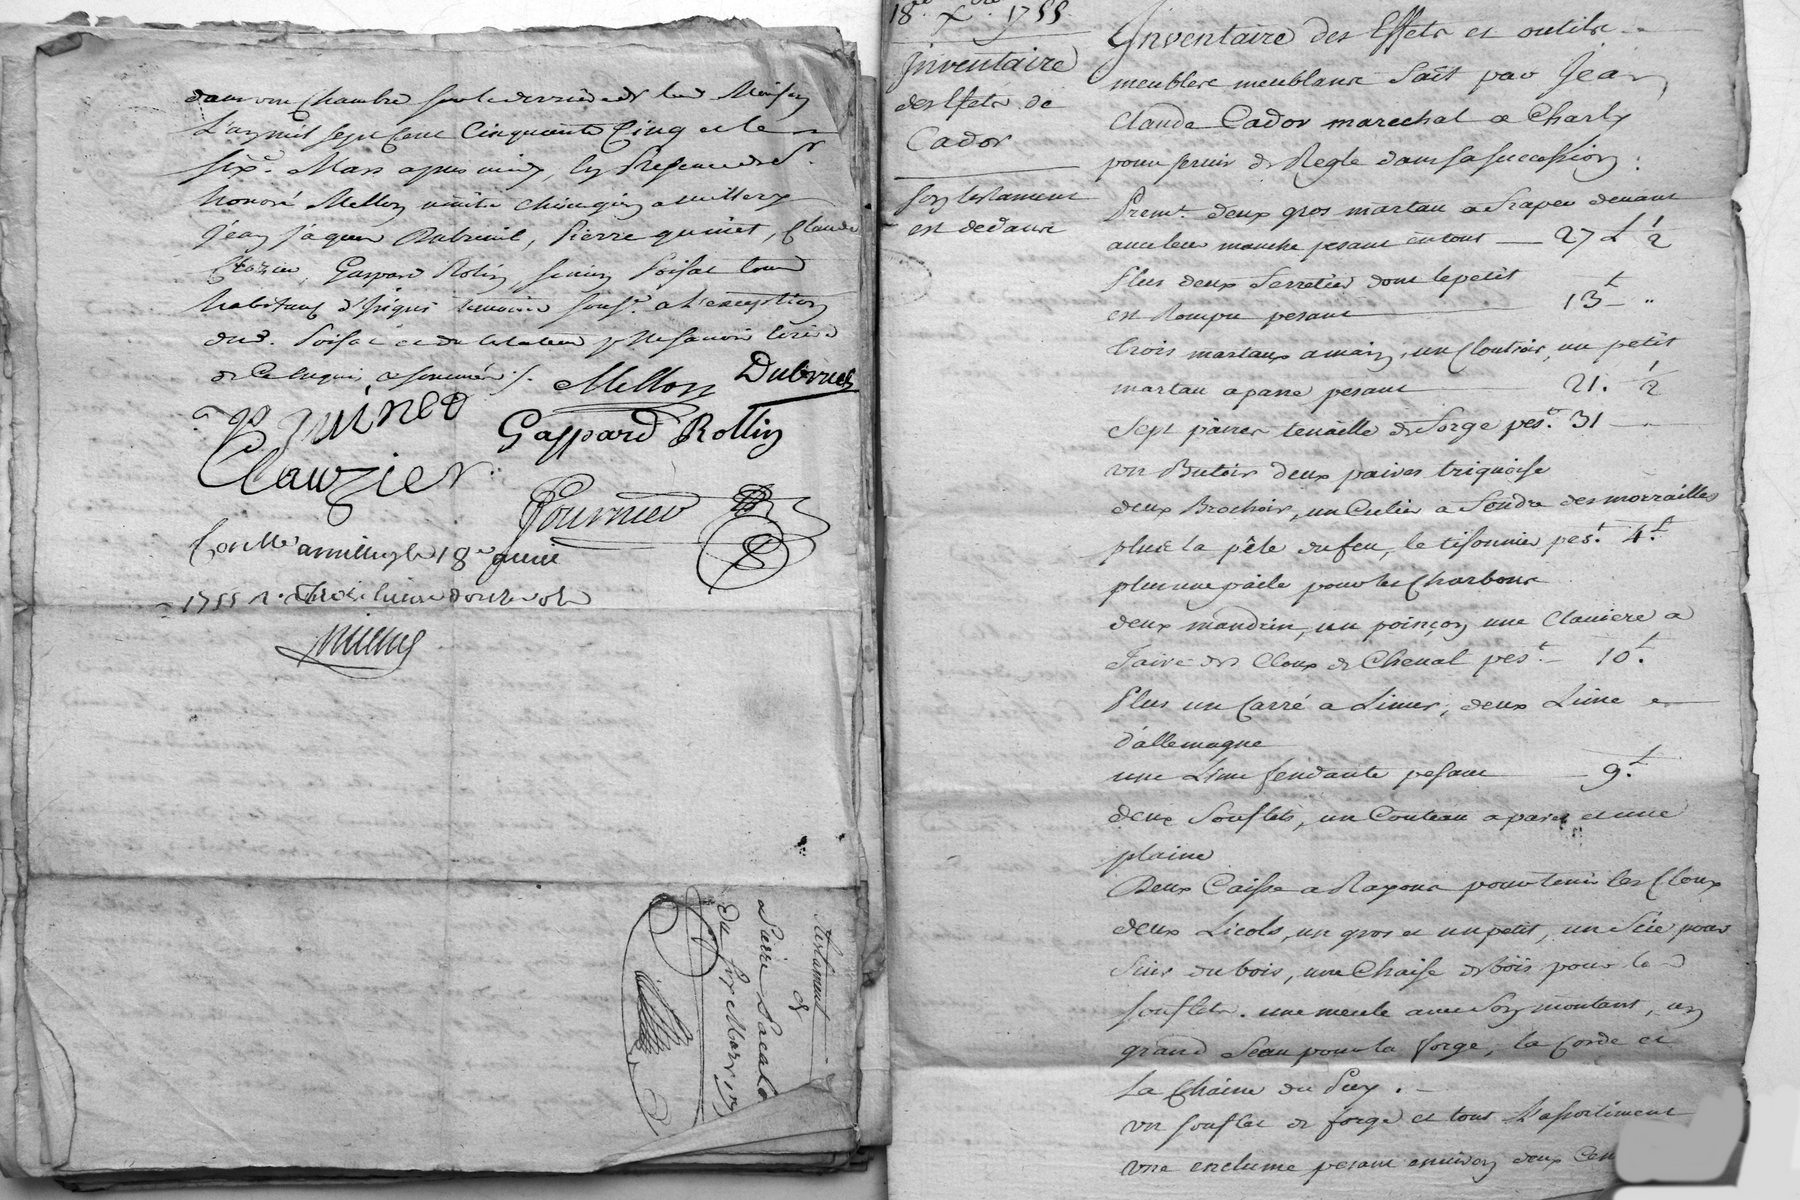 dans une Chambre sur le derrière de lad. Maison
L'an mil sept Cent Cinquante Cinq et le
six.e Mars apres midy, En Presence de S.r
honoré Mellon maitre chirurgien a millery
Jean Jaques Dubreuil, Pierre quinet, Claude
Clozier, Gaspard Rolin, Poisat tous
habitans d'Irigni temoins sous.é a l'exception
dud. Poisat et du testateur p.r ne savoir écrire
de Ce Enquis, et sommés ./.
Mellon Dubrueil
P quineo
Gaspard Rollin
Clauzier
Fournier
Con.lé a millery le 18.e
1755 R. Trois livres douze sols
testament
de
Pierre
Du six Mars 17
18.e X.bre 1755
Inventaire
des Effets de
Cador
son testament
est dedans
Inventaire des Effets et outils
meubles meublans fait par Jean
Claude Cador marechal a Charly
pour servir de Regle dans sa succession :
Prem.t deux gros martau a fraper devant
avec leur manche pesant en tout 27 L 1/2
Plus deux Serretier dont le petit
est Rompu pesant 13 L "
trois martaux a main, un Cloutoir, un petit
martau a pane pesant 21. 1/2
Sept paires tenaille de forge pes.t 31
un Butoir deux paires triquoise
deux Brochoir, un Culier a fondre des morrailles
plus la pêle du feu, le tisonnier pes.t 4.L
plus une paile pour les Charbons
deux mandrin, un poinçon une Claviere a
faire des Cloux de Cheval pes.t 10.L
Plus un Carré a Limer, deux Lime
d'allemagne
une Lime fendante pesant 9.L
deux Souflets, un Couteau a parer et une
plaine
Deux Caisse a Rayons pour tenir les Cloux
deux Licols, un gros et un petit, un Scie pour
Sier du bois, une Chaise de bois pour le
souflets. une meule avec son montant, un
grand Seau pour la forge, la Corde et
la Chaine du Puy.
un souflet de forge et tout L'assortiment
une enclume pesant environ deux Cen